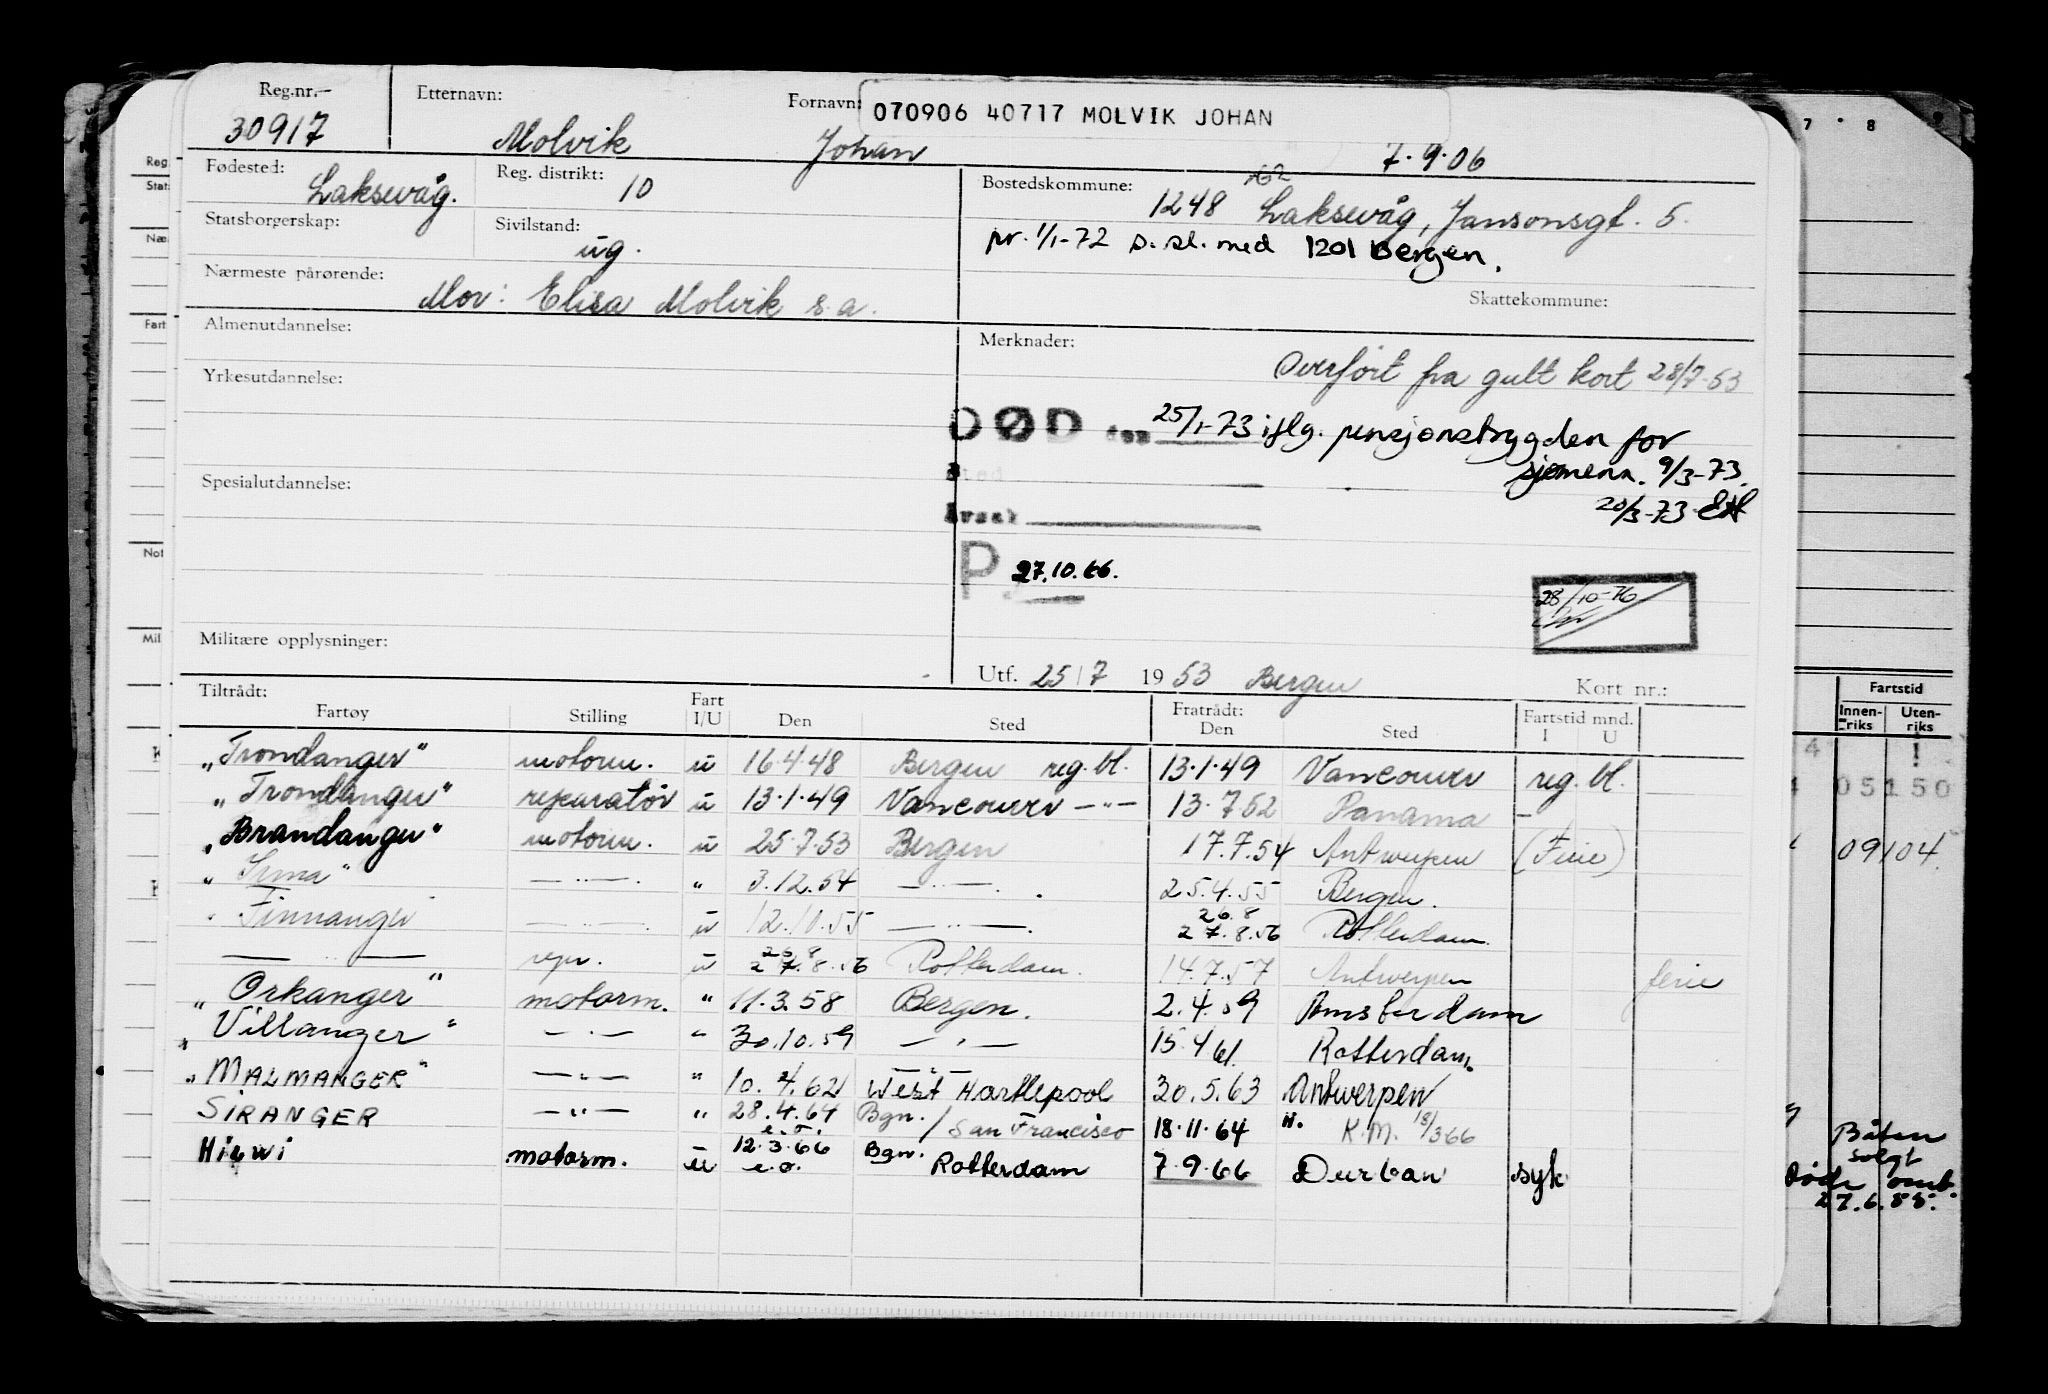 Reg.nr.— Etternavn: Fornavn: 070906 40717 MOLVIK JOHAN
30917 Molvik Johan 7.9.06
Fødested: Laksevåg. Reg. distrikt: 10
Bostedskommune: 1248 Laksevåg, Jansonsgt. 5.
Statsborgerskap: Sivilstand: ug.
pr. 1/1-72 s. sl. med 1201 Bergen.
Nærmeste pårørende: Mor: Elisa Molvik s.a.
Skattekommune:
Almenutdannelse:
Merknader: Overført fra gult kort 28/7-53
Yrkesutdannelse:
DØD den 25/1-73 iflg. pensjonstrygden for
sjømenn. 9/3-73.
Sted
Spesialutdannelse:
20/3-73
Årsak
P 27.10.66.
28/10-76
Militære opplysninger:
Utf. 25/7 1953 Bergen Kort nr.:
Tiltrådt: Fratrådt:
Fartøy Stilling Fart I/U Den Sted Den Sted Fartstid mnd. I U
"Trondanger" motorm. u 16.4.48 Bergen reg.bl. 13.1.49 Vancouver reg. bl.
"Trondanger" reparatør u 13.1.49 Vancouver —"— 13.7.52 Panama —
"Brandanger" motorm. u 25.7.53 Bergen 17.7.54 Antwerpen (Ferie)
"Irma" —"—. " 3.12.54 —"—. 25.4.55 Bergen.
"Finnanger" —"—. u 12.10.55 —"—. 26.8 27.8.56 Rotterdam.
—"— repr. u 26.8 27.8.56 Rotterdam. 14.7.57 Antwerpen ferie
"Orkanger" motorm. " 11.3.58 Bergen. 2.4.59 Amsterdam
"Villanger" —"— " 30.10.59 —"— 15.4.61. Rotterdam.
"MALMANGER" —"— " 10.4.62 West Hartlepool 30.5.63 Antwerpen
SIRANGER —"— " 28.4.64 e.o. Bgn./San Francisco 18.11.64 H. K.M. 18/3 66
Hiewi motorm. u 12.3.66 e.o. Bgn. Rotterdam 7.9.66 Durban syk
7 8 9
Reg.
Stat
Næ
Fart
Not
Mil
Fartstid
Innenriks Utenriks
05150
09104
Båten
solgt
27.6.85.